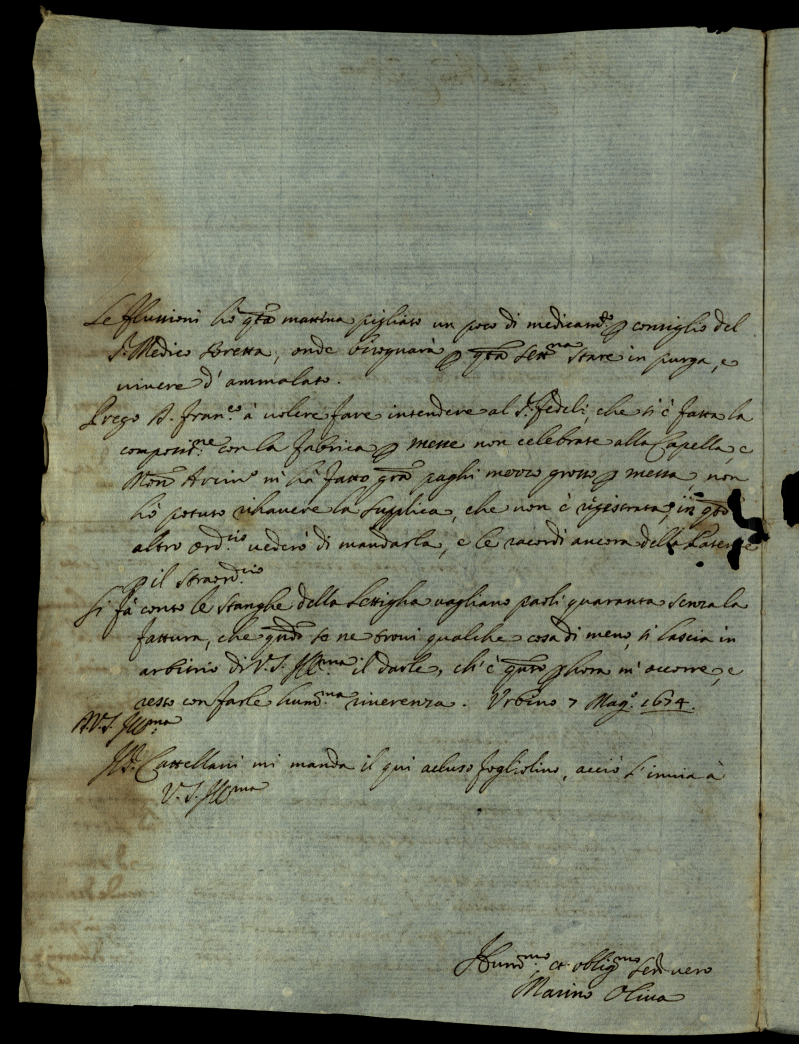 Le flussioni hò q.ta mattina pigliato un poco di medicam.to p consiglio del
S.r Medico Boretta, onde bisognarà p q.ta sett.na stare in purga, e
vivere d'ammalato.
Prego A. Fran.co à volere fare intendere al S.r Fedeli, che si è fatta la
composit.ne con la fabrica p messe non celebrate alla Capella, e
Mons.
hò potuto rihavere la supplica, che non è registrata, in q.to
altro ord.rio vederò di mandarla, e le racordi ancora della Patente
p il straord.rio
Si fà conto le stanghe della lettigha vagliano paoli quaranta senza la
fattura, che q.do se ne trovi qualche cosa di meno, si lascia in
arbitrio di V.S. Ill.ma il darle, ch'è q.to p hora m'accorre, e
resto con farle hum.ma riverenza. Urbino 7 Mag.o 1674.
A V.S. Ill.ma
Il S.r Castellani mi manda il qui acluso fogliolino, acciò l'invia à
V.S. Ill.ma
Hum.mo et oblig.mo ser.r vero
Marino Oliva